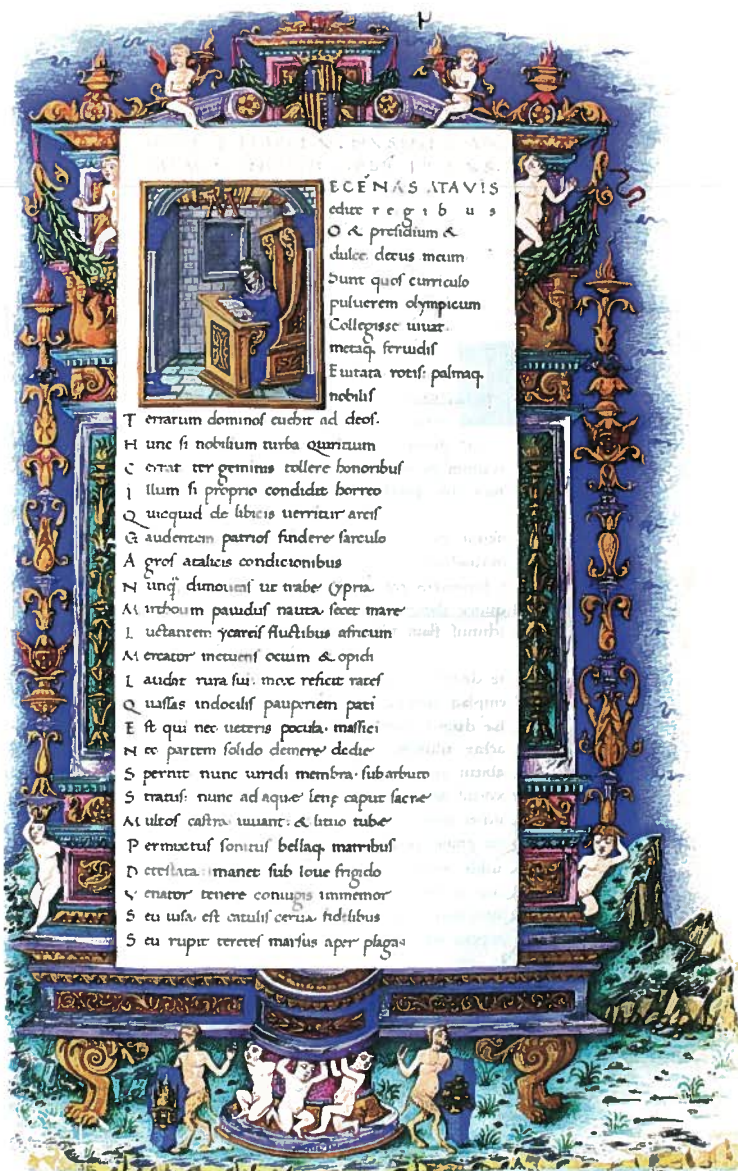 ECENAS ATAVIS
edite regibus
O & presidium &
dulce decus meum
Sunt quos curriculo
puluerem olympicum
Collegisse iuuat
metaq. feruidis
Euitata rotis: palmaq.
nobilis
Terrarum dominos euehit ad deos.
Hunc si nobilium turba Quiritium
Certat ter geminis tollere honoribus
Illum si proprio condidit horreo
Quicquid de libicis uerritur areis
Gaudentem patrios findere sarculo
Agros atalicis condicionibus
Nunq̃ dimoueas ut trabe Cypria
Mirthoum pauidus nauta secet mare
Luctantem ycareis fluctibus africum
Mercator metuens ocium & opidi
Laudat rura sui: mox reficit rates
Quassas indocilis pauperiem pati
Est qui nec ueteris pocula massici
Nec partem solido demere de die
Spernit nunc uiridi membra sub arbuto
Stratus: nunc ad aque lene caput sacre
Multos castra iuuant: & lituo tube
Permixtus sonitus bellaq. matribus
Detestata: manet sub Ioue frigido
Venator tenere coniugis immemor
Seu uisa est catulis cerua fidelibus
Seu rupit teretes marsus aper plagas